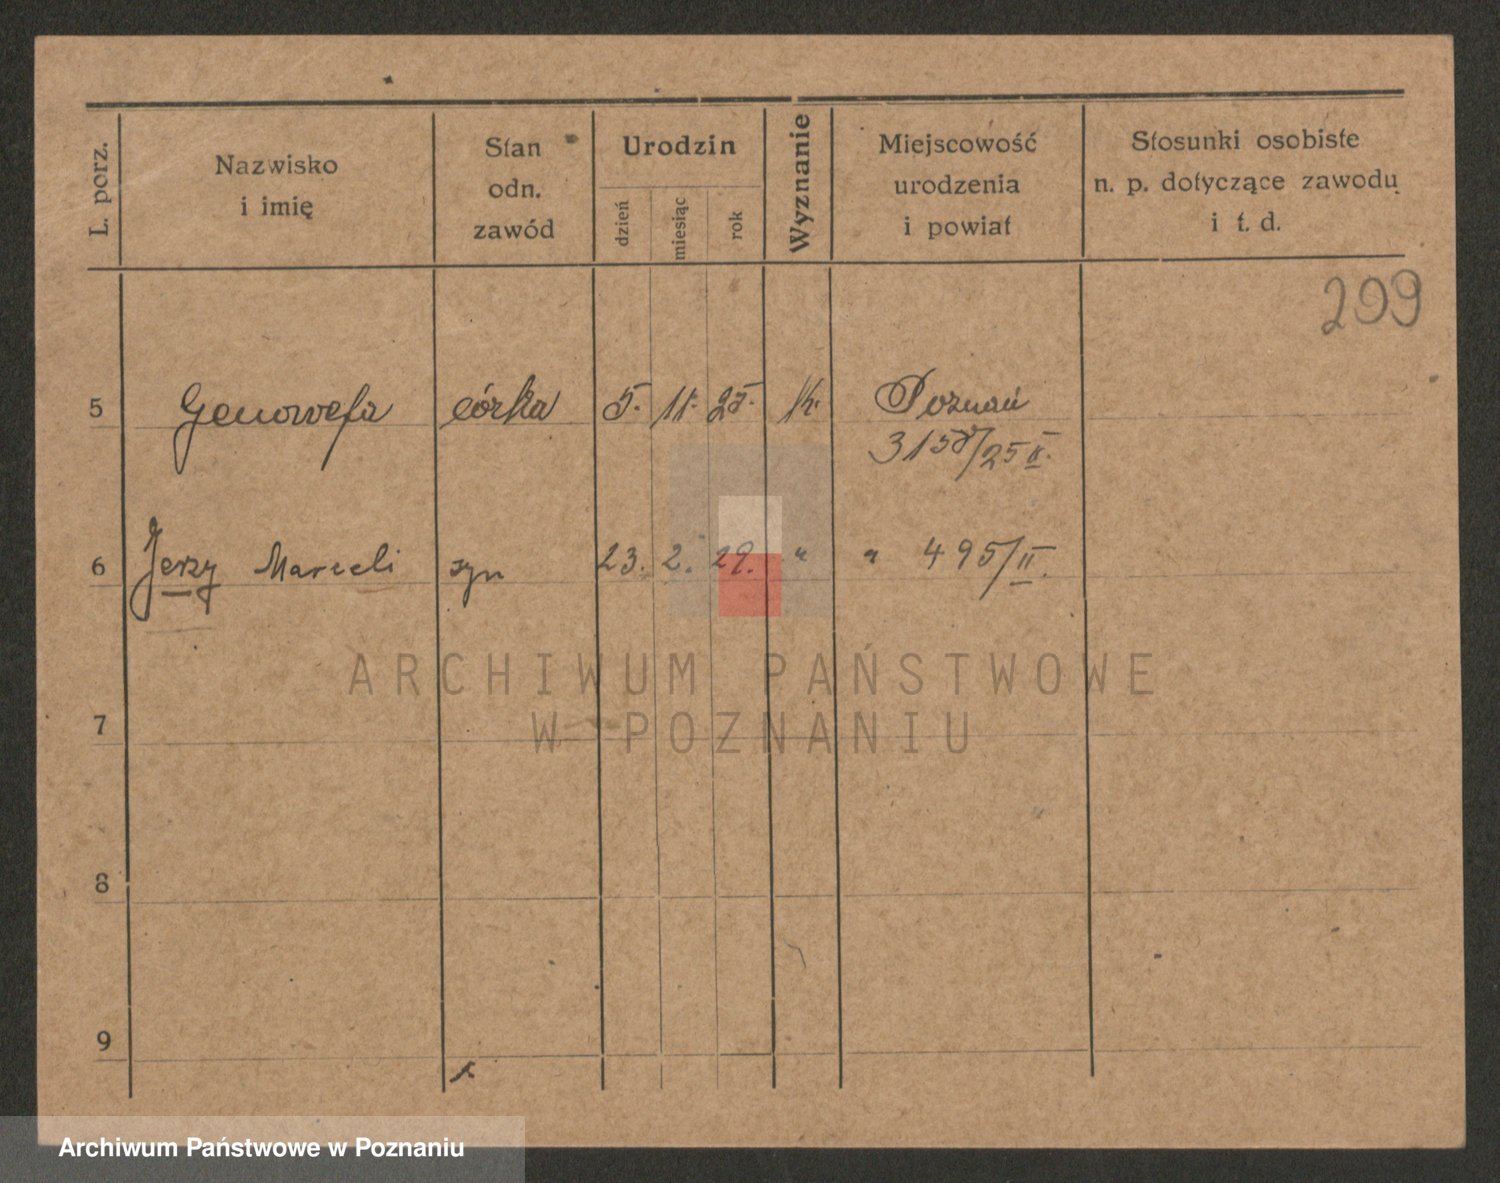 L. porz.
Nazwisko
i imię
Stan
odn.
zawód
Urodzin
dzień
miesiąc
rok
Wyznanie
Miejscowość
urodzenia
i powiat
Stosunki osobiste
n. p. dotyczące zawodu
i t. d.
299
5 Genowefa córka 5. 11. 25. K. Poznań
3158/25 II.
6 Jerzy Marceli syn 23. 2. 29. " " 495/II.
7
8
9
ARCHIWUM PAŃSTWOWE
W POZNANIU
Archiwum Państwowe w Poznaniu